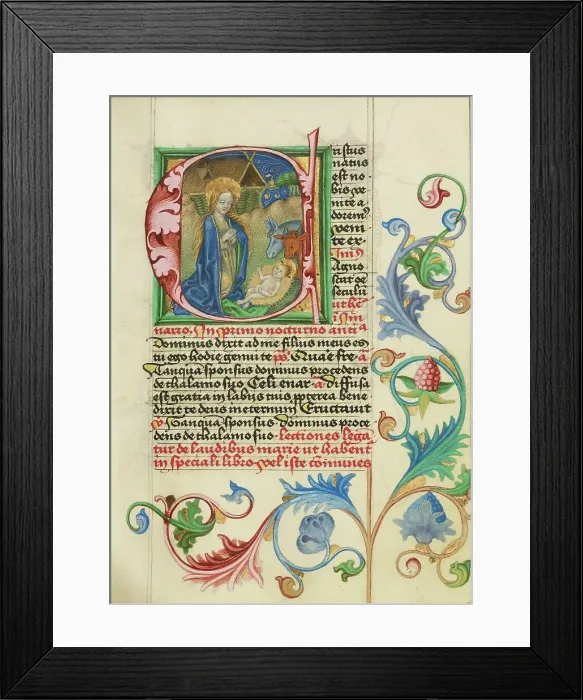 ristus
natus
est no⸗
bis ve
nite a⸗
dorem⁹
veni
te ex⸗
Agno
scat oē
seculū
nario. In primo nocturno anti⁹
Dominus dixit ad me filius meus es
tu ego hodie genui te ps̄ Quare fre. a
Tanquā sponsus dominus procedens
de thalamo suo. Celi enar. a Diffusa
est gratia in labiis tuis ppterea bene
dixit te deus in eternum Eructavit
v Tanquā sponsus. Dominus proce
dens de thalamo suo. lectiones lega
tur de laudibus marie ut habent
in speciali libro vel iste cōmunes